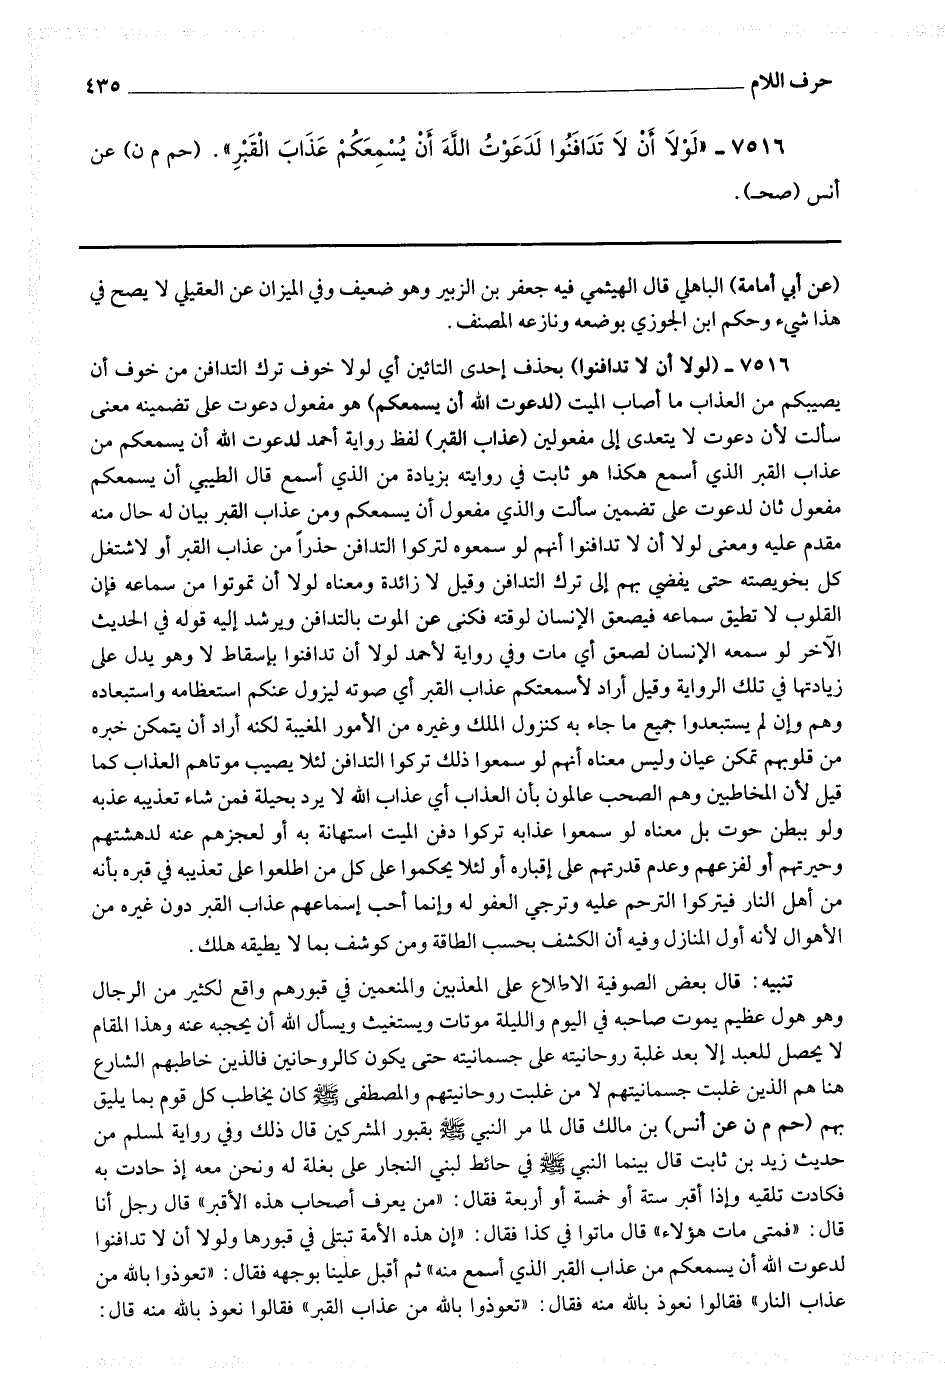 حرف اللام ٤٣٥
٧٥١٦ ـ «لَوْلاَ أَنْ لاَ تَدَافَنُوا لَدَعَوْتُ اللَّهَ أَنْ يُسْمِعَكُمْ عَذَابَ الْقَبْرِ». (حم م ن) عن
أنس (صحـ).
(عن أبي أمامة) الباهلي قال الهيثمي فيه جعفر بن الزبير وهو ضعيف وفي الميزان عن العقيلي لا يصح في
هذا شيء وحكم ابن الجوزي بوضعه ونازعه المصنف.
٧٥١٦ ـ (لولا أن لا تدافنوا) بحذف إحدى التائين أي لولا خوف ترك التدافن من خوف أن
يصيبكم من العذاب ما أصاب الميت (لدعوت الله أن يسمعكم) هو مفعول دعوت على تضمينه معنى
سألت لأن دعوت لا يتعدى إلى مفعولين (عذاب القبر) لفظ رواية أحمد لدعوت الله أن يسمعكم من
عذاب القبر الذي أسمع هكذا هو ثابت في روايته بزيادة من الذي أسمع قال الطيبي أن يسمعكم
مفعول ثان لدعوت على تضمين سألت والذي مفعول أن يسمعكم ومن عذاب القبر بيان له حال منه
مقدم عليه ومعنى لولا أن لا تدافنوا أنهم لو سمعوه لتركوا التدافن حذراً من عذاب القبر أو لاشتغل
كل بخويصته حتى يفضي بهم إلى ترك التدافن وقيل لا زائدة ومعناه لولا أن تموتوا من سماعه فإن
القلوب لا تطيق سماعه فيصعق الإنسان لوقته فكنى عن الموت بالتدافن ويرشد إليه قوله في الحديث
الآخر لو سمعه الإنسان لصعق أي مات وفي رواية لأحمد لولا أن تدافنوا بإسقاط لا وهو يدل على
زيادتها في تلك الرواية وقيل أراد لأسمعتكم عذاب القبر أي صوته ليزول عنكم استعظامه واستبعاده
وهم وإن لم يستبعدوا جميع ما جاء به كنزول الملك وغيره من الأمور المغيبة لكنه أراد أن يتمكن خبره
من قلوبهم تمكن عيان وليس معناه أنهم لو سمعوا ذلك تركوا التدافن لئلا يصيب موتاهم العذاب كما
قيل لأن المخاطبين وهم الصحب عالمون بأن العذاب أي عذاب الله لا يرد بحيلة فمن شاء تعذيبه عذبه
ولو ببطن حوت بل معناه لو سمعوا عذابه تركوا دفن الميت استهانة به أو لعجزهم عنه لدهشتهم
وحيرتهم أو لفزعهم وعدم قدرتهم على إقباره أو لئلا يحكموا على كل من اطلعوا على تعذيبه في قبره بأنه
من أهل النار فيتركوا الترحم عليه وترجي العفو له وإنما أحب إسماعهم عذاب القبر دون غيره من
الأهوال لأنه أول المنازل وفيه أن الكشف بحسب الطاقة ومن كوشف بما لا يطيقه هلك.
تنبيه: قال بعض الصوفية الاطلاع على المعذبين والمنعمين في قبورهم واقع لكثير من الرجال
وهو هول عظيم يموت صاحبه في اليوم والليلة موتات ويستغيث ويسأل الله أن يحجبه عنه وهذا المقام
لا يحصل للعبد إلا بعد غلبة روحانيته على جسمانيته حتى يكون كالروحانين فالذين خاطبهم الشارع
هنا هم الذين غلبت جسمانيتهم لا من غلبت روحانيتهم والمصطفى ﷺ كان يخاطب كل قوم بما يليق
بهم (حم م ن عن أنس) بن مالك قال لما مر النبي ﷺ بقبور المشركين قال ذلك وفي رواية لمسلم من
حديث زيد بن ثابت قال بينما النبي ﷺ في حائط لبني النجار على بغلة له ونحن معه إذ حادت به
فكادت تلقيه وإذا أقبر ستة أو خمسة أو أربعة فقال: «من يعرف أصحاب هذه الأقبر» قال رجل أنا
قال: «فمتى مات هؤلاء» قال ماتوا في كذا فقال: «إن هذه الأمة تبتلى في قبورها ولولا أن لا تدافنوا
لدعوت الله أن يسمعكم من عذاب القبر الذي أسمع منه» ثم أقبل علينا بوجهه فقال: «تعوذوا بالله من
عذاب النار» فقالوا نعوذ بالله منه فقال: «تعوذوا بالله من عذاب القبر» فقالوا نعوذ بالله منه قال: